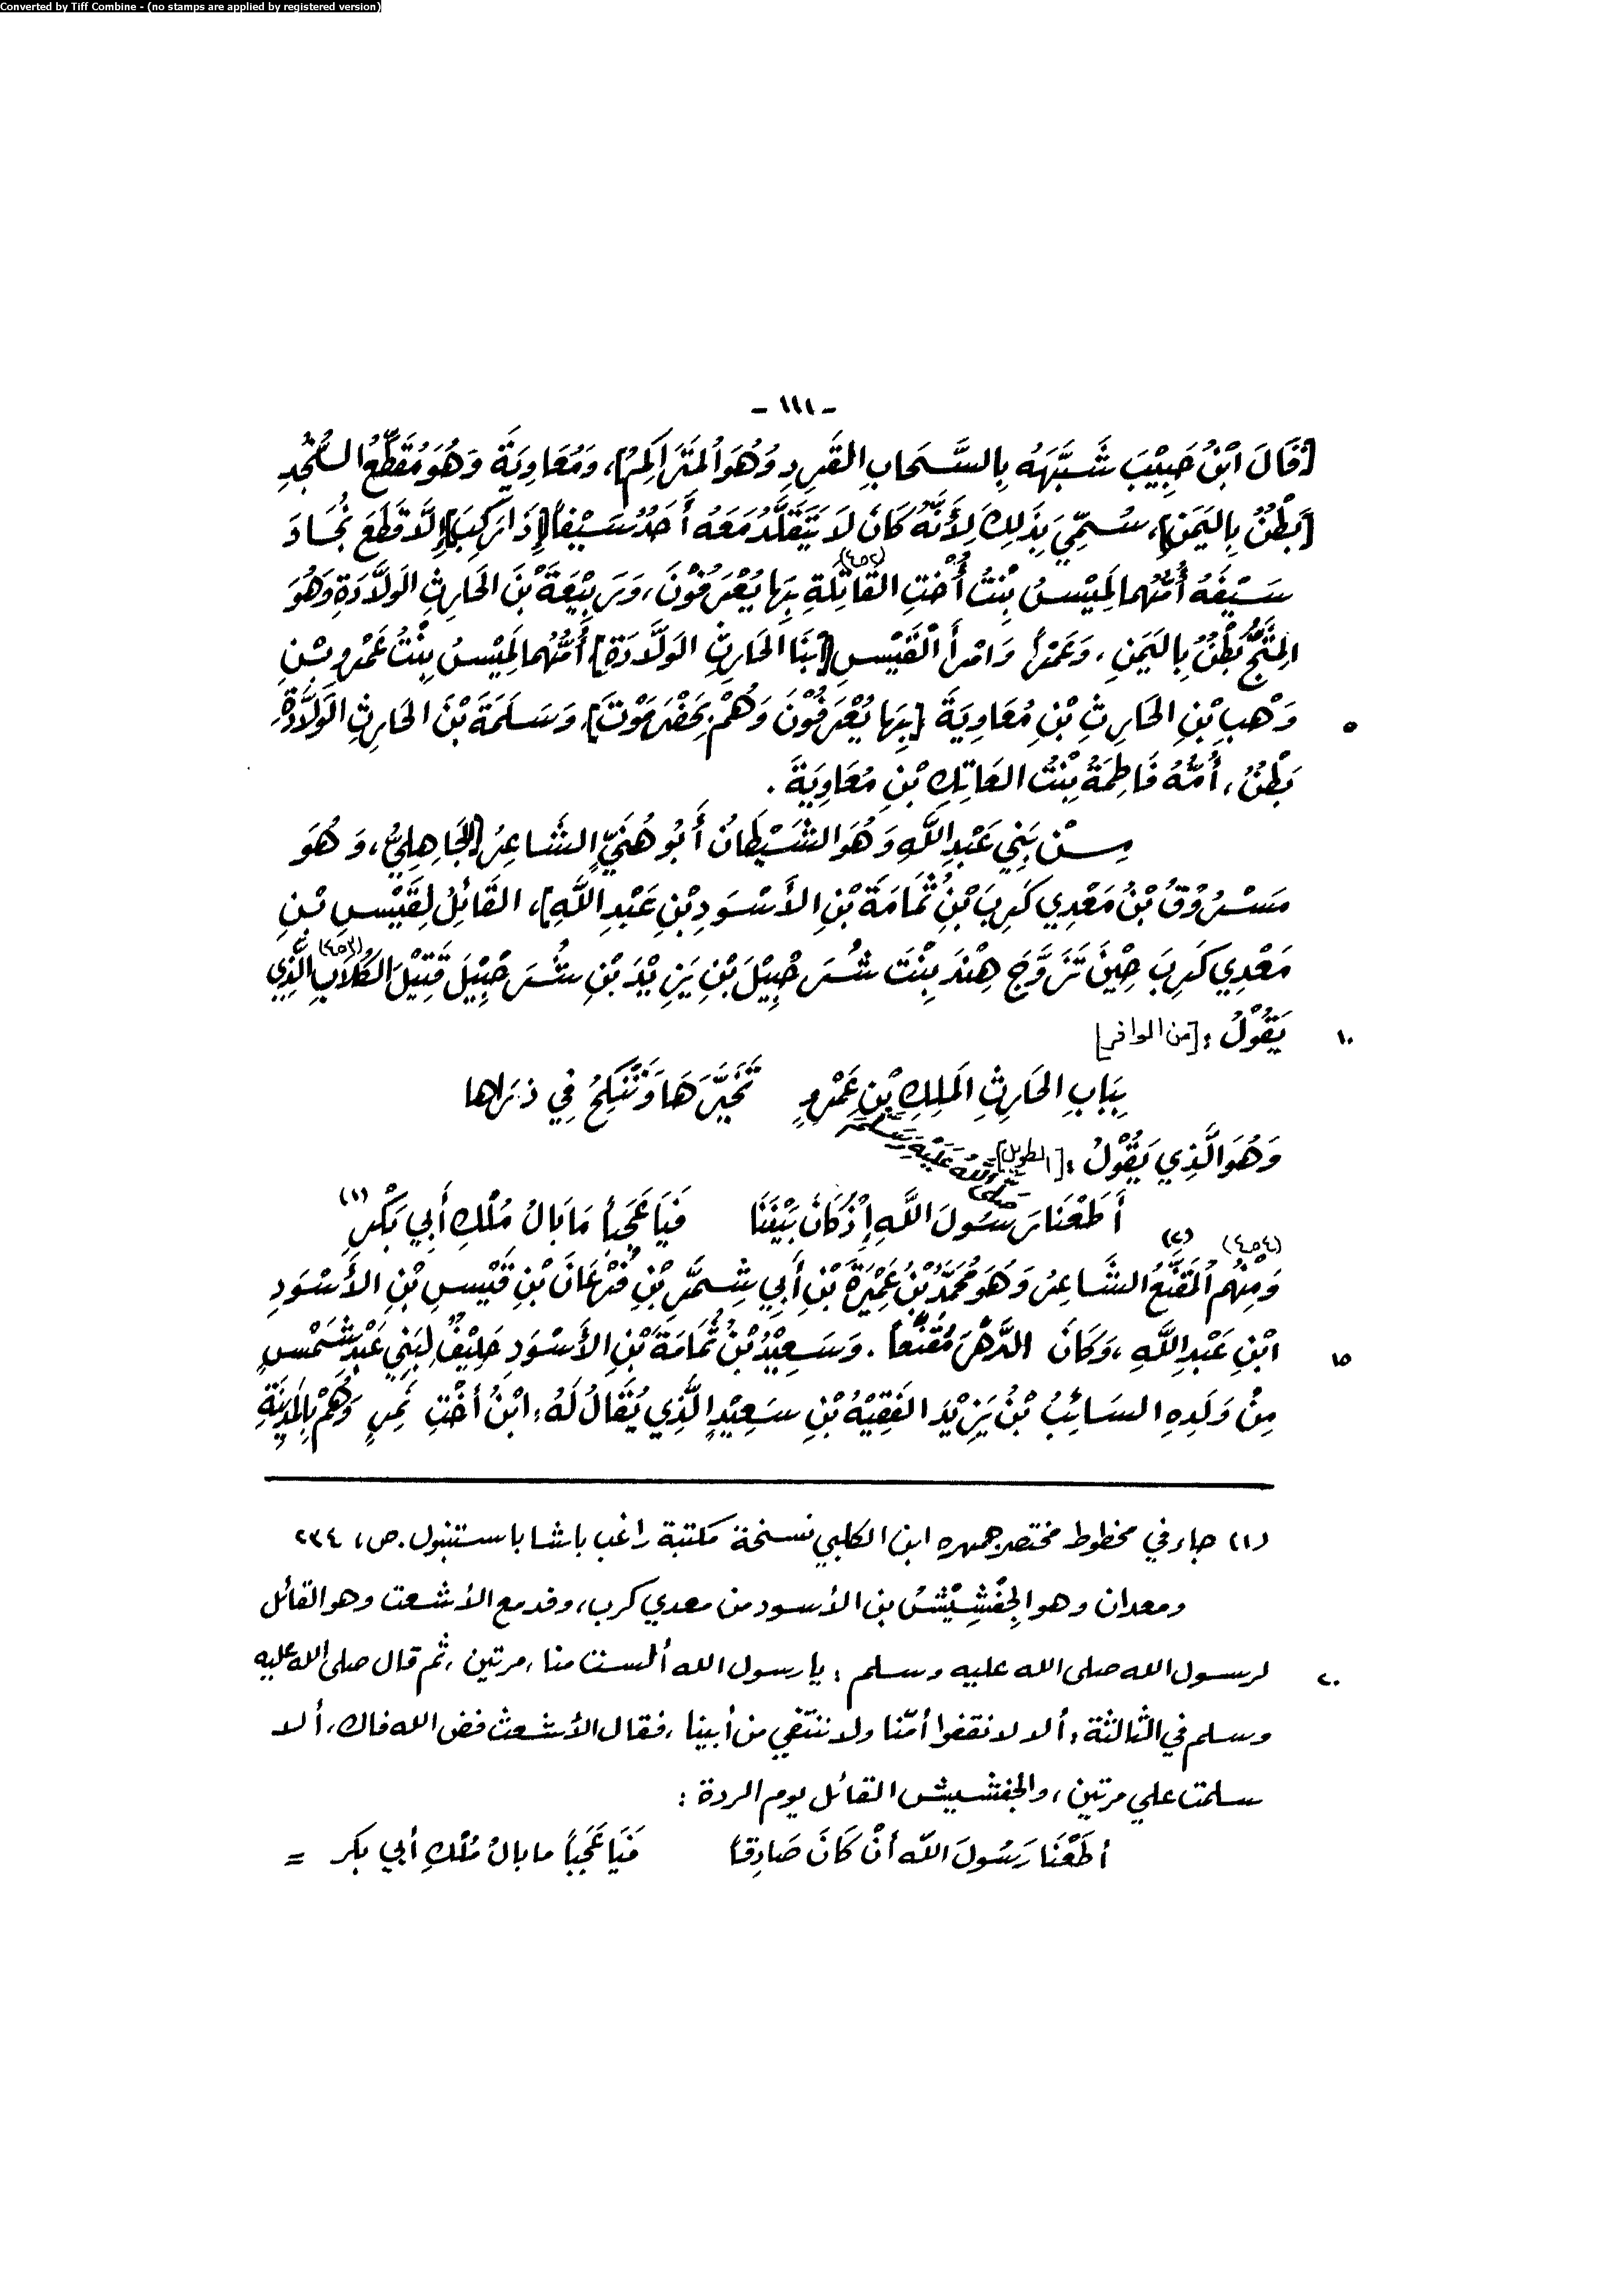 Converted by Tiff Combine - (no stamps are applied by registered version)
- ١١١ -
[قَالَ ابْنُ حَبِيْبَ شَبَّهَهُ بِالسَّحَابِ القَرِدِ وَهُوَ المُتَرَاكِمُ]، وَمُعَاوِيَةَ وَهُوَ مُقَطِّعُ النُّجُدِ
[بَطْنٌ بِاليَمَنِ]، سُمِّيَ بِذَلِكَ لِأَنَّهُ كَانَ لَا يَتَقَلَّدُ مَعَهُ أَحَدٌ سَيْفَاً [إِذَا رَكِبَ] إِلَّا قَطَعَ نِجَادَ
سَيْفَهُ أُمُّهُما لَمِيْسُ بِنْتُ أُخْتِ القَاتِلَةِ (٤٥٢) بِهَا يُعْرَفُوْنَ، وَرَبِيْعَةَ بْنَ الحَارِثِ الوَلَّادَةِ وَهُوَ
المِثَجُّ بَطْنٌ بِاليَمَنِ، وَعَمْرَاً وَامْرَأَ القَيْسِ [ابْنَا الحَارِثِ الوَلَّادَةِ] أُمُّهُما لَمِيْسُ بِنْتُ عَمْرِو بْنِ
٥ وَهْبِ بْنِ الحَارِثِ بْنِ مُعَاوِيَةَ [بِهَا يُعْرَفُوْنَ وَهُمْ بِحَضْرَمَوْتَ]، وَسَلَمَةَ بْنَ الحَارِثِ الوَلَّادَةِ،
بَطْنٌ، أُمُّهُ فَاطِمَةُ بِنْتُ العَاتِكِ بْنِ مُعَاوِيَةَ .
مِنْ بَنِي عَبْدِ اللَّهِ وَهُوَ الشَيْطَانُ أَبُو هُنَيٍّ الشَاعِرُ [الجَاهِلِيُّ، وَهُوَ
مَسْرُوْقُ بْنُ مَعْدِي كَرِبَ بْنِ ثُمَامَةَ بْنِ الأَسْوَدِ بْنِ عَبْدِ اللَّهِ]، القَائِلُ لِقَيْسِ بْنِ
مَعْدِي كَرِبَ حِيْنَ تَزَوَّجَ هِنْدَ بِنْتَ شُرَحْبِيْلَ بْنِ يَزِيْدَ بْنِ شُرَحْبِيْلَ قَتِيْلَ الكُلَابِ (٤٥٣) الَّذِي
١٠ يَقُوْلُ : [من الوافر]
بِبَابِ الحَارِثِ المَلِكِ بْنِ عَمْرٍو تَخَيَّرَهَا وَتَنْكِحُ فِي ذَرَاها
وَهُوَ الَّذِي يَقُوْلُ : [الطويل]
صَلَّى اللهُ عَلَيْهِ وَسَلَّمَ
أَطَعْنَا رَسُوْلَ اللَّهِ إِذْ كَانَ بَيْنَنَا فَيَا عَجَبَاً مَا بَالُ مُلْكِ أَبِي بَكْرٍ (١)
وَمِنْهُم (٤٥٤) المُقَنَّعُ (٢) الشَّاعِرُ وَهُوَ مُحَمَّدُ بْنُ عُمَيْرَةَ بْنِ أَبِي شِمَّرِ بْنِ فُرْعَانَ بْنِ قَيْسِ بْنِ الأَسْوَدِ
١٥ ابْنِ عَبْدِ اللَّهِ، وَكَانَ الدَّهْرَ مُقَنَّعاً . وَسَعِيْدُ بْنُ ثُمَامَةَ بْنِ الأَسْوَدِ حَلِيْفٌ لِبَنِي عَبْدِ شَمْسٍ
مِنْ وَلَدِهِ السَائِبُ بْنُ يَزِيْدَ الفَقِيْهُ بْنِ سَعِيْدٍ الَّذِي يُقَالُ لَهُ: ابْنُ أُخْتِ نَمِرٍ وَهُمْ بِالمَدِيْنَةِ
(١) جاء في مخطوط مختصر جمهره ابن الكلبي نسخة مكتبة راغب باشا باستنبول . ص، ٢٣٤
ومعدان وهو الجِفْشِيْشُ بن الأسود من معدي كرب، وفد مع الأشعت وهو القائل
٢٠ لرسول الله صلى الله عليه وسلم : يا رسول الله ألست منا، مرتين، ثم قال صلى الله عليه
وسلم في الثالثة، ألا لا نقفوا أمّنا ولا ننتفي من أبينا، فقال الأشعث فض الله فاك، ألا
سلمت علي مرتين، والجفشيش القائل يوم الردة :
أطَعْنَا رَسُولَ اللّه أنْ كَانَ صَادِقاً فَيَا عَجَباً ما بالُ مُلْكِ أبي بكر =